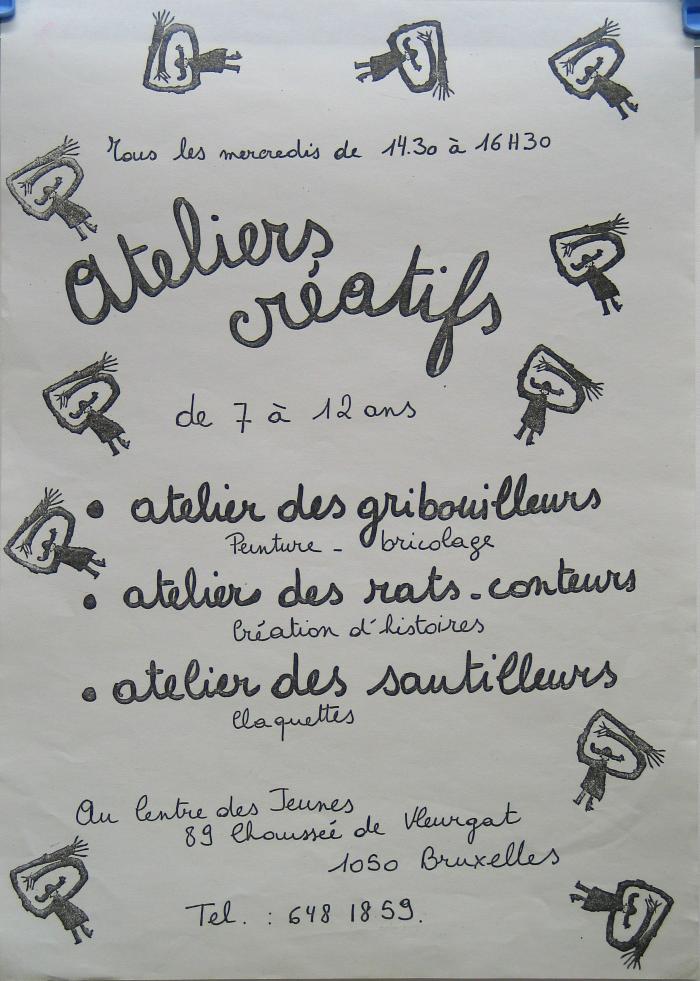 Tous les mercredis de 14.30 à 16H30
Ateliers
créatifs
de 7 à 12 ans
• atelier des gribouilleurs
Peinture - bricolage
• atelier des rats-conteurs
Création d'histoires
• atelier des sautilleurs
Claquettes
Au Centre des Jeunes
89 Chaussée de Vleurgat
1050 Bruxelles
Tel. : 648 18 59.